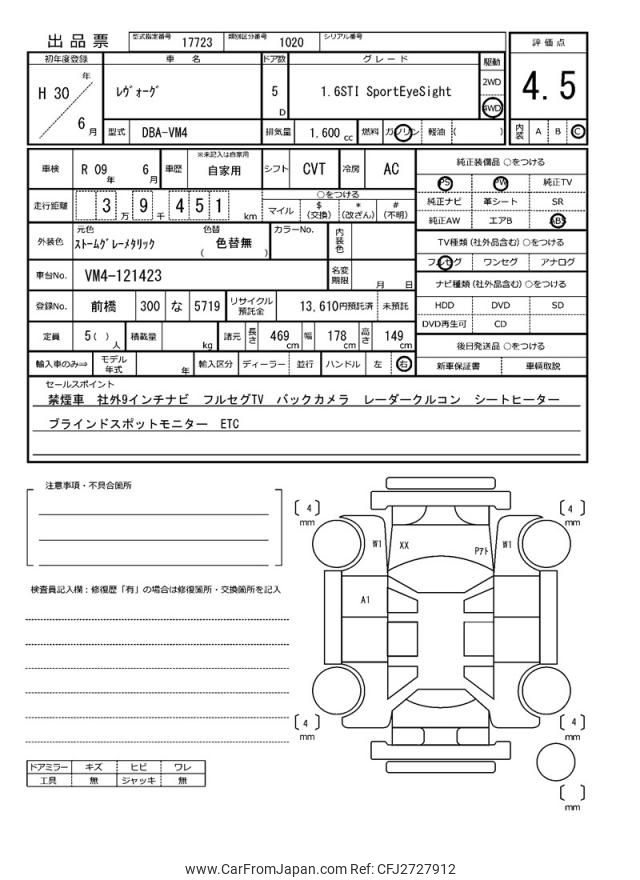 出品票 型式指定番号 17723 類別区分番号 1020 シリアル番号
評価点
4.5
内装 A B C
初年度登録 車名 ドア数 グレード 駆動
H 30 年 レヴォーグ 5 D 1.6STI SportEyeSight 2WD
4WD
6 月 型式 DBA-VM4 排気量 1.600 cc 燃料 ガソリン 軽油 ( )
車検 R 09 年 6 月 車歴 ※未記入は自家用 自家用 シフト CVT 冷房 AC
走行距離 3 万 9 千 4 5 1 km
○をつける
マイル $ (交換) * (改ざん) # (不明)
外装色 元色 ストームグレーメタリック 色替 ( 色替無 ) カラーNo. 内装色
車台No. VM4-121423 名変期限 月 日
登録No. 前橋 300 な 5719 リサイクル預託金 13,610円預託済 未預託
定員 5( ) 人 積載量 kg 諸元 長さ 469 cm 幅 178 cm 高さ 149 cm
輸入車のみ⇒ モデル年式 年 輸入区分 ディーラー 並行 ハンドル 左 右
純正装備品 ○をつける
PS PW 純正TV
純正ナビ 革シート SR
純正AW エアB ABS
TV種類 (社外品含む) ○をつける
フルセグ ワンセグ アナログ
ナビ種類 (社外品含む) ○をつける
HDD DVD SD
DVD再生可 CD
後日発送品 ○をつける
新車保証書 車輌取説
セールスポイント
禁煙車 社外9インチナビ フルセグTV バックカメラ レーダークルコン シートヒーター
ブラインドスポットモニター ETC
注意事項・不具合箇所
検査員記入欄:修復歴「有」の場合は修復箇所・交換箇所を記入
ドアミラー キズ ヒビ ワレ
工具 無 ジャッキ 無
[ 4 ] mm [ 4 ] mm
W1 XX P7ト W1
A1
[ 4 ] mm [ 4 ] mm
[ ] mm
www.CarFromJapan.com Ref: CFJ2727912